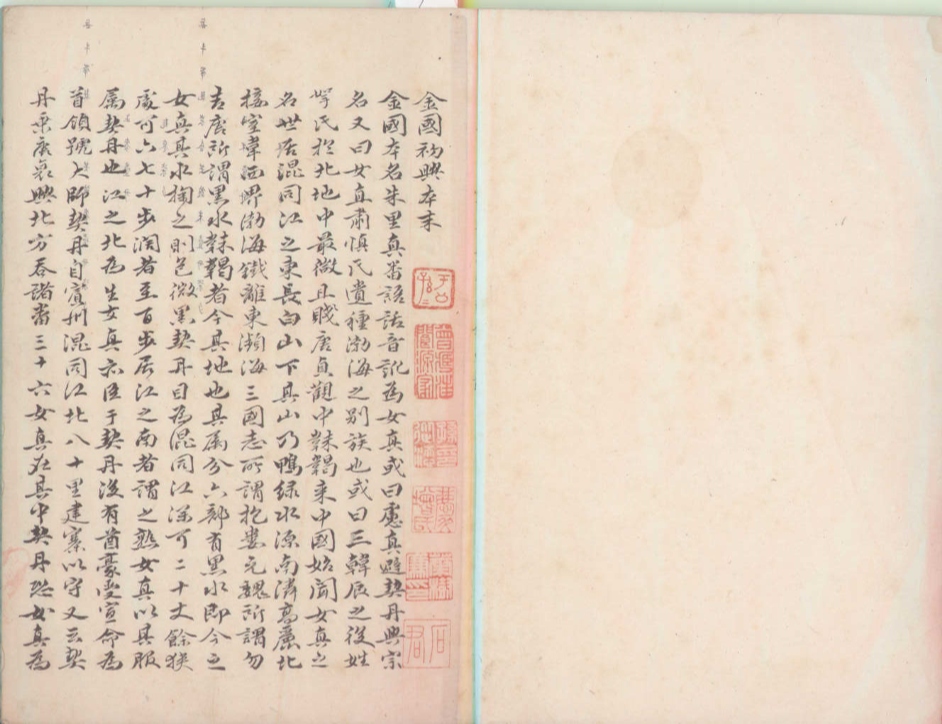 金國初興本末
金國本名朱里真番語訛音訛為女真或曰慮真避契丹興宗
名又曰女直肅慎氏遺種渤海之別族也或曰三韓辰之後姓
挐氏於北地中最微且賤唐貞觀中靺鞨来中國始聞女真之
名世居混同江之東長白山下其山乃鴨綠水源南隣高麗北
接室韋西界渤海鐵離東瀕海三國志所謂挹婁元魏所謂勿
吉唐所謂黑水靺鞨者今其地也其屬分六部有黑水部今之
女真其水掬之則色微黑契丹目為混同江深可二十丈餘狹
處可六七十步闊者至百步居江之南者謂之熟女真以其服
屬契丹也江之北為生女真亦臣于契丹後有酋豪受宣命為
首領號太師契丹自賓州混同江北八十里建寨以守又云契
丹乗唐衰興北方吞諸番三十六女真在其中契丹恐女真為